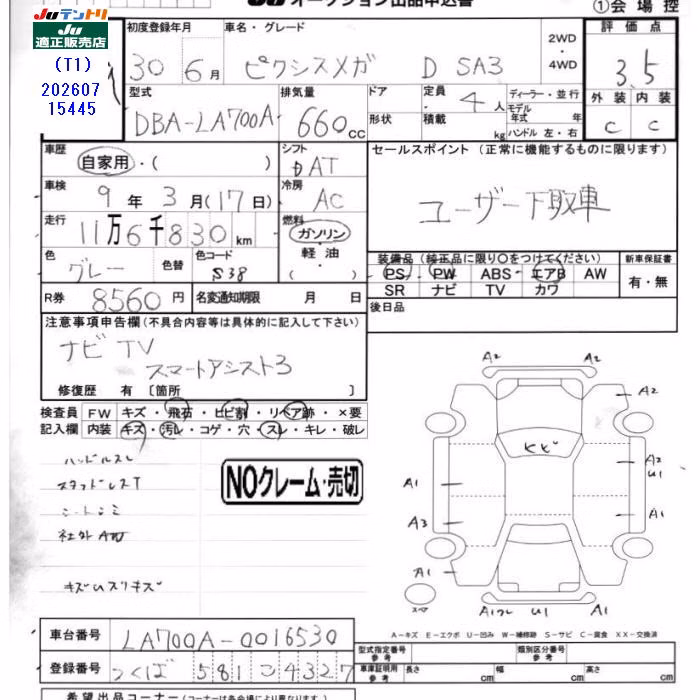 JUテントリ
JU
適正販売店
JU オークション出品申込書
①会場控
(T1)
202607
15445
初度登録年月
車名・グレード
2WD
・
4WD
評価点
30年 6月
ピクシスメガ D SA3
3.5
型式
排気量
ドア
定員
ディーラー・並行
外装
内装
DBA-LA700A
660cc
形状
積載
4人
kg
モデル
年式
年
ハンドル 左・右
C
C
車歴
シフト
セールスポイント (正常に機能するものに限ります)
自家用・( )
DAT
ユーザー下取車
車検
冷房
9年 3月(17日)
AC
走行
燃料
11万6千830km
ガソリン
・
軽油
・
( )
色
色替
色コード
グレー
S38
装備品 (純正品に限り○をつけてください)
新車保証書
PS PW ABS エアB AW
有・無
SR ナビ TV カワ
R券 8560円
名変通知期限 月 日
後日品
注意事項申告欄 (不具合内容等は具体的に記入して下さい)
ナビ TV
スマートアシスト3
修復歴 有 〔箇所 〕
検査員 FW キズ・飛石・ヒビ割・リペア跡・×要
記入欄 内装 キズ・汚レ・コゲ・穴・スレ・キレ・破レ
ハンドルスレ
スタッドレスT
シートシミ
社外AW
NOクレーム・売切
A2
A2
A2
ヒビ
A2
U1
A1
A1
A3
A1
A1
A1フレ
U1
A-キズ E-エクボ U-凹み W-補修跡 S-サビ C-腐食 XX-交換済
車台番号
LA700A-0016530
登録番号
つくば 581 こ 4327
型式指定番号
参考
類別区分番号
参考
車庫証明用
参考
長さ cm
幅 cm
高さ cm
希望出品コーナー (コーナーは各会場により異なります)